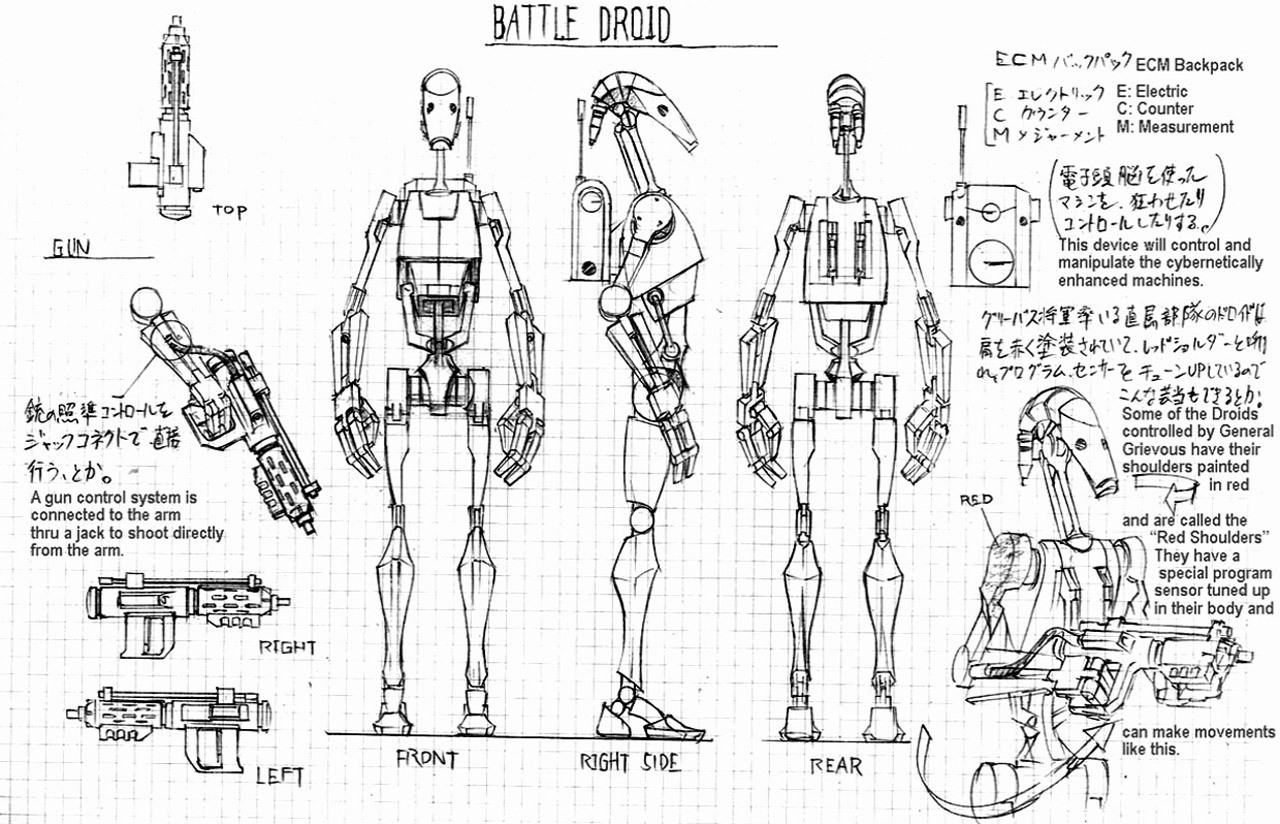 BATTLE DROID
TOP
GUN
銃の照準コントロールを
ジャックコネクトで直接
行う、とか。
A gun control system is
connected to the arm
thru a jack to shoot directly
from the arm.
RIGHT
LEFT
FRONT
RIGHT SIDE
REAR
ECM バックパック ECM Backpack
E エレクトリック E: Electric
C カウンター C: Counter
M メジャーメント M: Measurement
(電子頭脳を使った
マシンを、狂わせたり
コントロールしたりする。)
This device will control and
manipulate the cybernetically
enhanced machines.
グリーバス将軍率いる直属部隊のドロイドは
肩を赤く塗装されていて、レッドショルダーと呼ば
れ、プログラム、センサーを チューンUPしているので
こんな芸当もできるとか。
Some of the Droids
controlled by General
Grievous have their
shoulders painted
in red
RED
and are called the
"Red Shoulders"
They have a
special program
sensor tuned up
in their body and
can make movements
like this.